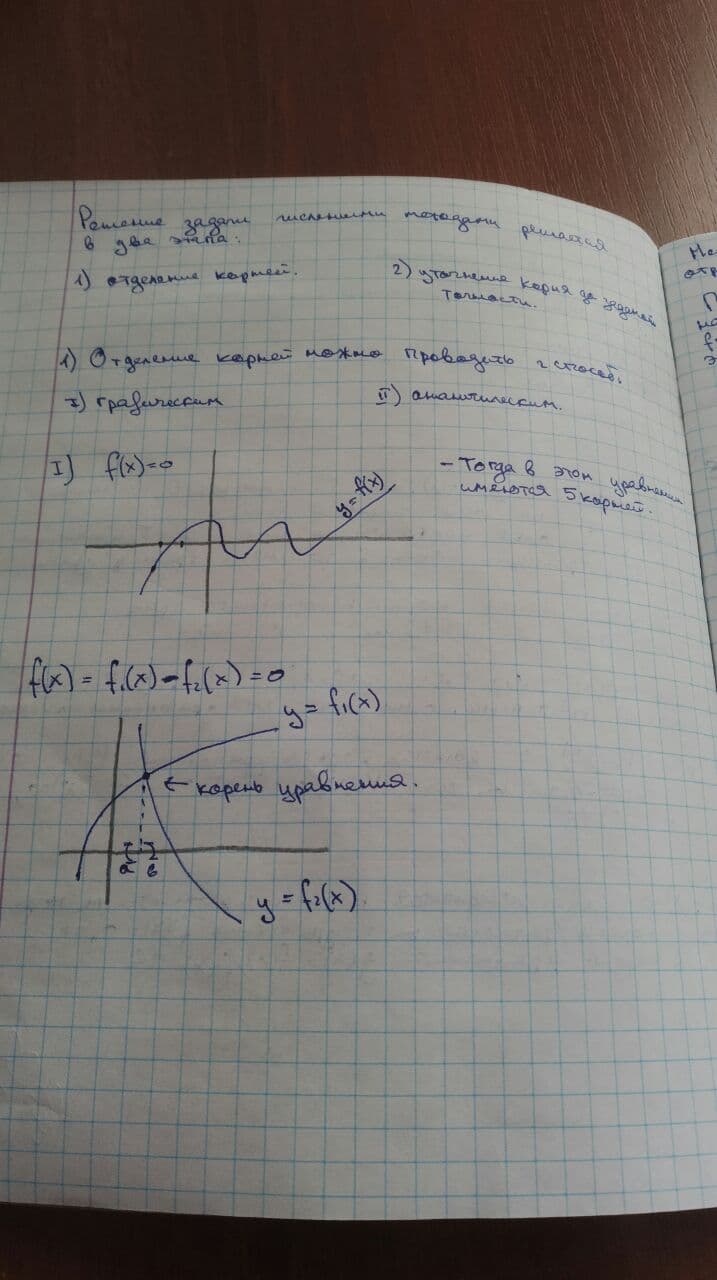 Решение задачи численными методами решается
в два этапа:
1) отделение корней.
2) уточнение корня до заданной
точности.
1) Отделение корней можно проводить 2 способ.
I) графическим
II) аналитическим.
I) f(x)=0
y=f(x)
- Тогда в этом уравнении
имеются 5 корней.
f(x) = f₁(x) - f₂(x) = 0
y = f₁(x)
← корень уравнения.
a в
y = f₂(x)